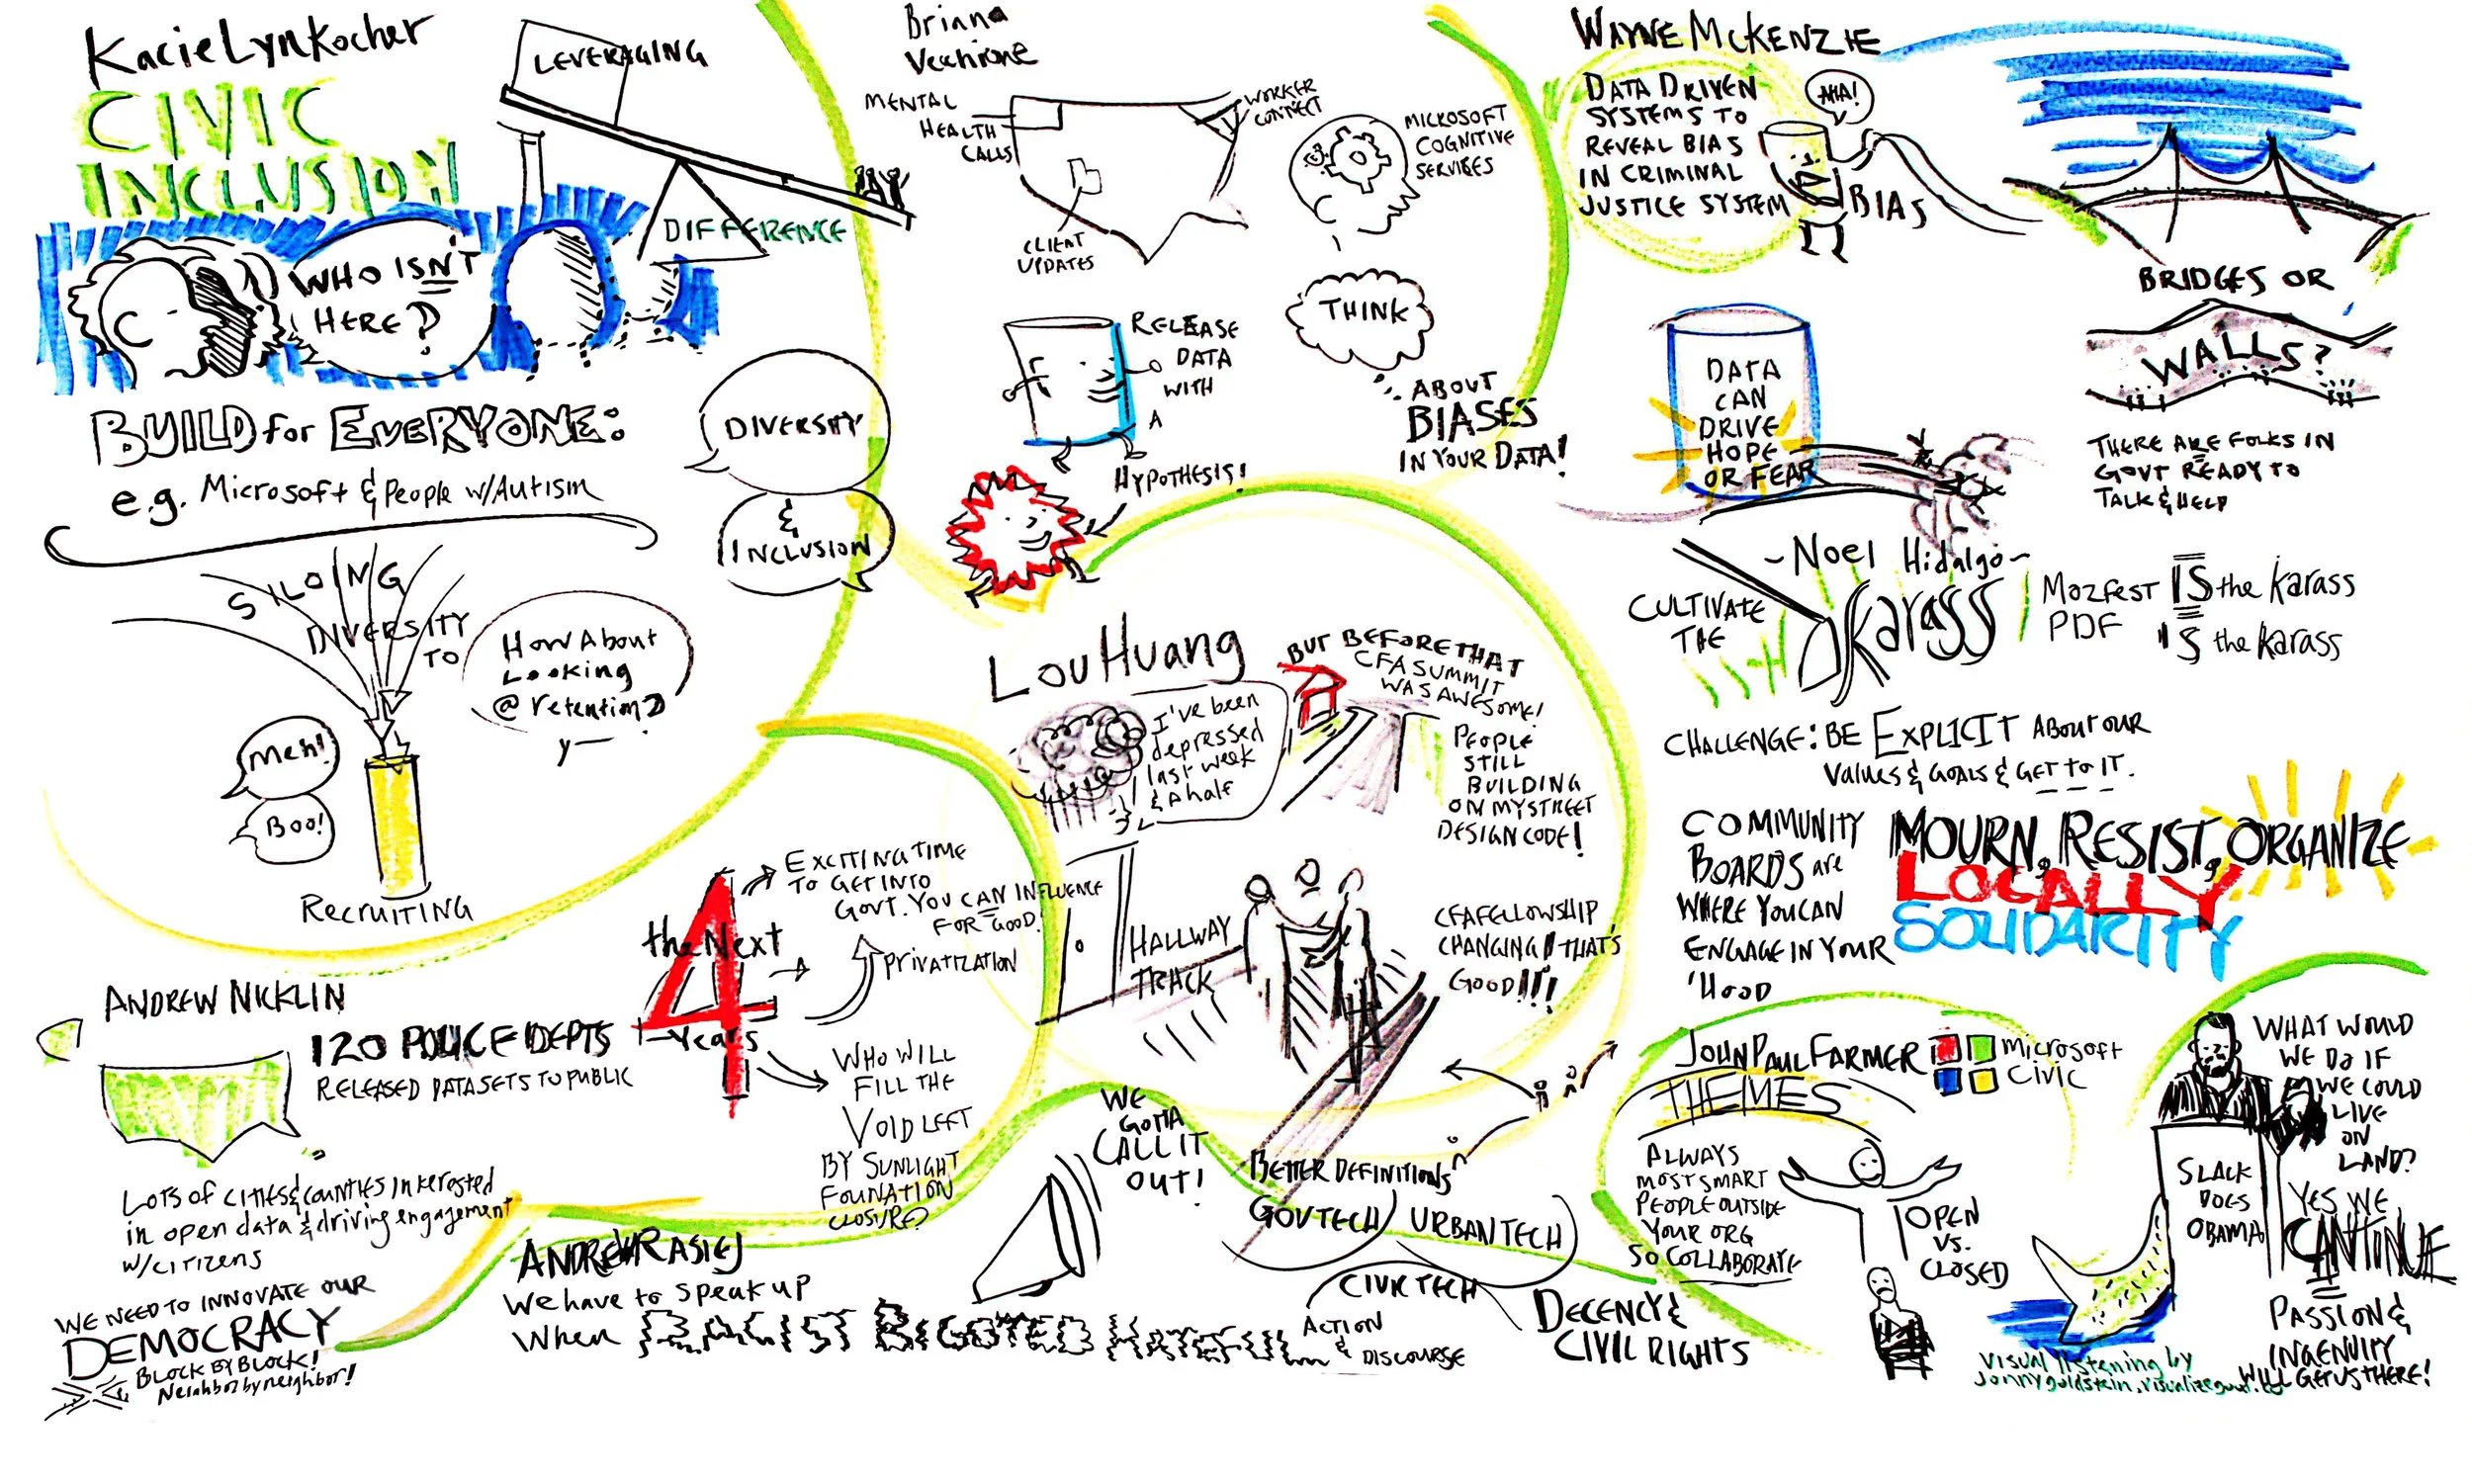 Kacie Lyn Kocher
CIVIC
INCLUSION
LEVERAGING
DIFFERENCE
WHO ISN'T
HERE?
BUILD for EVERYONE:
e.g. Microsoft & People w/Autism
DIVERSITY
&
INCLUSION
SILOING
DIVERSITY
TO
How About
Looking
@ retention?
Meh!
Boo!
RECRUITING
Briana
MENTAL
HEALTH
CALLS
WORKER
CONNECT
CLIENT
UPDATES
MICROSOFT
COGNITIVE
SERVICES
RELEASE
DATA
WITH
A
HYPOTHESIS!
THINK
ABOUT
BIASES
IN YOUR DATA!
WAYNE MCKENZIE
DATA DRIVEN
SYSTEMS TO
REVEAL BIAS
IN CRIMINAL
JUSTICE SYSTEM
AHA!
BIAS
BRIDGES OR
WALLS?
DATA
CAN
DRIVE
HOPE
OR FEAR
THERE ARE FOLKS IN
GOVT READY TO
TALK & HELP
~Noel Hidalgo~
CULTIVATE
THE
Karass
MOZFEST IS the Karass
PDF IS the Karass
CHALLENGE: BE EXPLICIT ABOUT OUR
VALUES & GOALS & GET TO IT.
COMMUNITY
BOARDS are
WHERE YOU CAN
ENGAGE IN YOUR
'HOOD
MOURN, RESIST, ORGANIZE
LOCALLY
SOLIDARITY
Lou Huang
I've been
depressed
last week
& a half
BUT BEFORE THAT
CFA SUMMIT
WAS AWESOME!
PEOPLE
STILL
BUILDING
ON MY STREET
DESIGN CODE!
HALLWAY
TRACK
CFA FELLOWSHIP
CHANGING! THAT'S
GOOD!!!
ANDREW NICKLIN
120 POLICE DEPTS
RELEASED DATASETS TO PUBLIC
LOTS OF CITIES & COUNTIES interested
in open data & driving engagement
w/CITIZENS
WE NEED TO INNOVATE OUR
DEMOCRACY
BLOCK BY BLOCK!
Neighbor by neighbor!
the Next
4
Years
EXCITING TIME
TO GET INTO
GOVT. YOU CAN INFLUENCE
FOR GOOD!
PRIVATIZATION
WHO WILL
FILL THE
VOID LEFT
BY SUNLIGHT
FOUNDATION
CLOSURE?
ANDREW RASIEJ
We have to speak up
When RACIST BIGOTED HATEFUL
ACTION
& DISCOURSE
WE
GOTTA
CALL IT
OUT!
BETTER DEFINITIONS
GOVTECH
URBANTECH
CIVIC TECH
DECENCY &
CIVIL RIGHTS
JOHN PAUL FARMER
Microsoft
Civic
THEMES
ALWAYS
MOST SMART
PEOPLE OUTSIDE
YOUR ORG
SO COLLABORATE
OPEN
VS.
CLOSED
SLACK
DOES
OBAMA
WHAT WOULD
WE DO IF
WE COULD
LIVE
ON
LAND?
YES WE
CANTINUE
PASSION &
INGENUITY
WILL GET US THERE!
VISUAL listening by